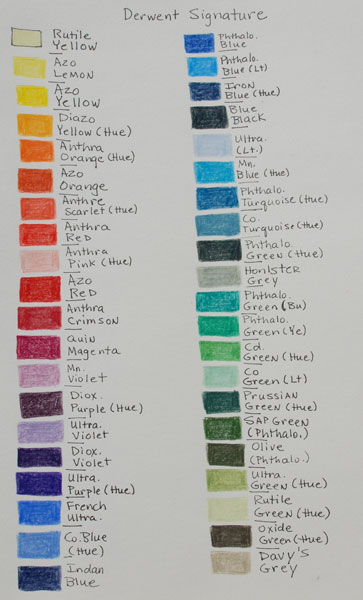 Derwent Signature
Rutile
Yellow
Azo
Lemon
Azo
Yellow
Diazo
Yellow (Hue)
Anthra
Orange (Hue)
Azo
Orange
Anthre
Scarlet (Hue)
Anthra
Red
Anthra
Pink (Hue)
Azo
Red
Anthra
Crimson
Quin
Magenta
Mn.
Violet
Diox.
Purple (Hue)
Ultra.
Violet
Diox.
Violet
Ultra.
Purple (Hue)
French
Ultra.
Co. Blue
(Hue)
Indan
Blue
Phthalo.
Blue
Phthalo.
Blue (Lt)
Iron
Blue (Hue)
Blue
Black
Ultra.
(Lt.)
Mn.
Blue (Hue)
Phthalo.
Turquoise (Hue)
Co.
Turquoise (Hue)
Phthalo.
Green (Hue)
Honister
Grey
Phthalo.
Green (Bu)
Phthalo.
Green (Ye)
Cd.
Green (Hue)
Co
Green (Lt)
Prussian
Green (Hue)
Sap Green
(Phthalo.)
Olive
(Phthalo.)
Ultra.
Green (Hue)
Rutile
Green (Hue)
Oxide
Green (Hue)
Davy's
Grey